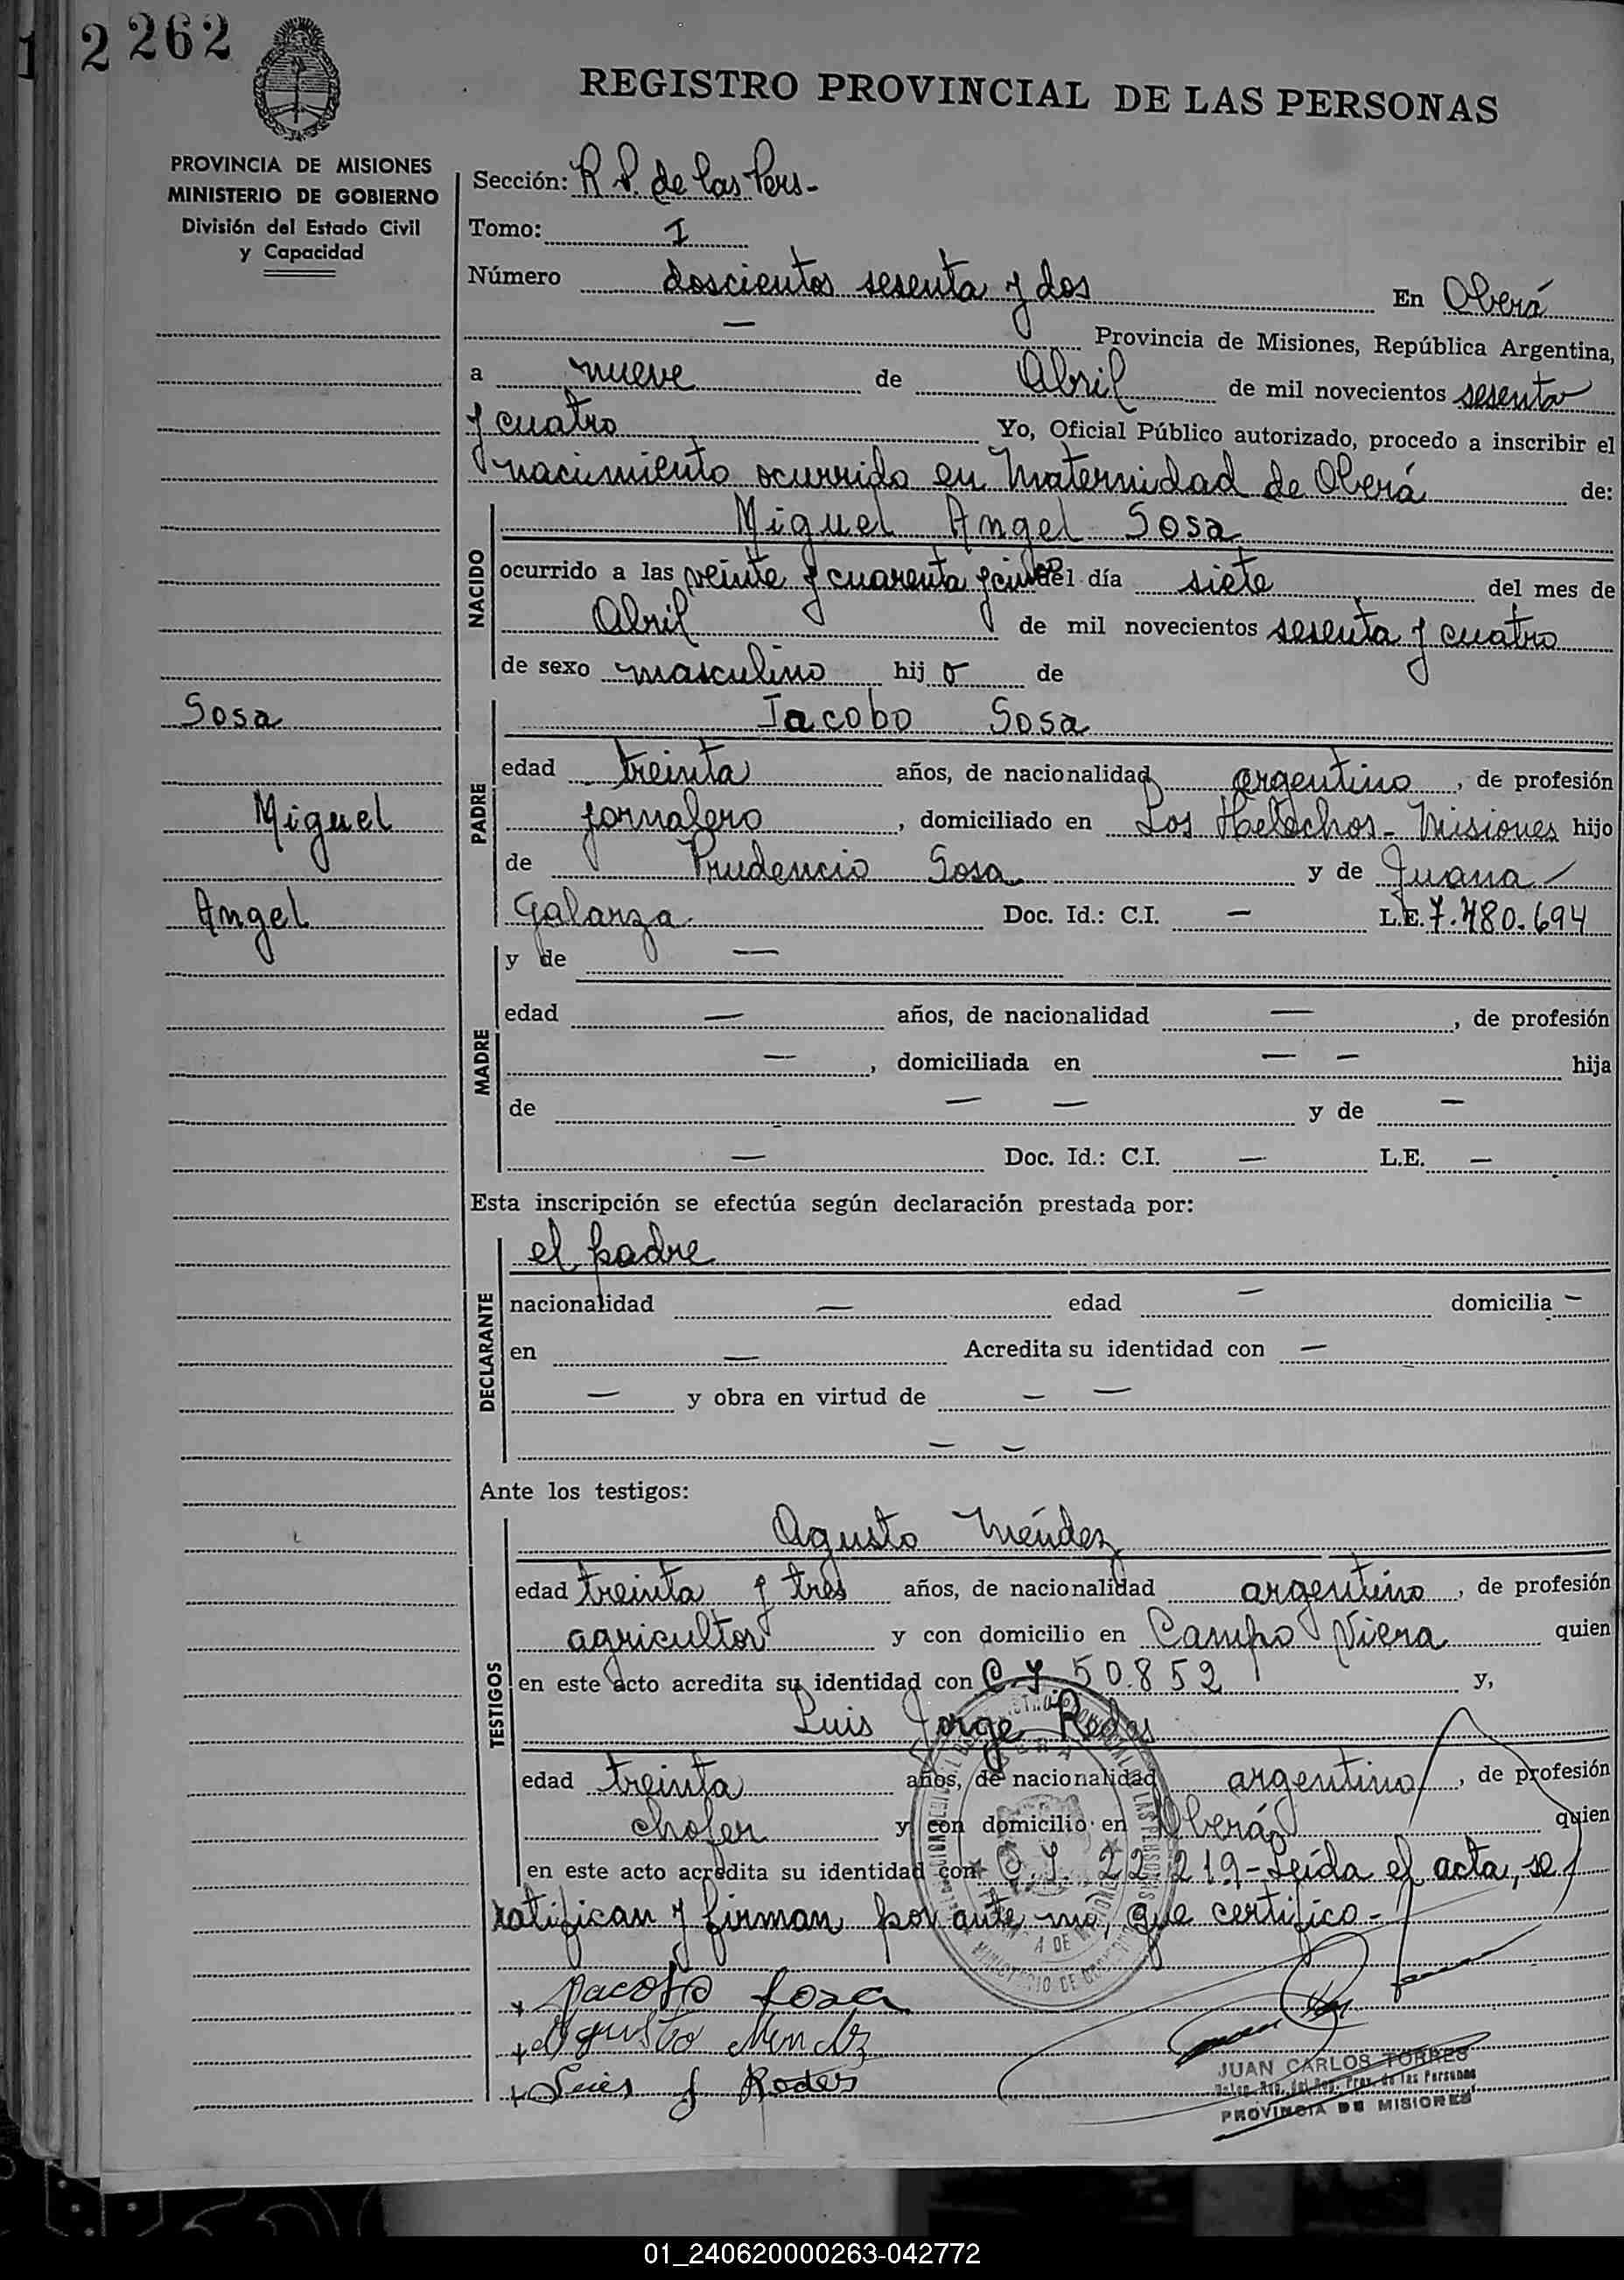 1 2 262
REGISTRO PROVINCIAL DE LAS PERSONAS
PROVINCIA DE MISIONES
MINISTERIO DE GOBIERNO
División del Estado Civil
y Capacidad
Sección: R P. de las Pers-
Tomo: I
Número doscientos sesenta y dos En Oberá
— Provincia de Misiones, República Argentina,
a nueve de Abril de mil novecientos sesenta
y cuatro Yo, Oficial Público autorizado, procedo a inscribir el
nacimiento ocurrido en Maternidad de Oberá de:
NACIDO
Miguel Angel Sosa
ocurrido a las veinte y cuarenta y cinco del día siete del mes de
Abril de mil novecientos sesenta y cuatro
de sexo masculino hij o de
Sosa
Miguel
Angel
PADRE
Jacobo Sosa
edad treinta años, de nacionalidad argentino, de profesión
jornalero, domiciliado en Los Helechos - Misiones hijo
de Prudencio Sosa y de Juana
Galarza Doc. Id.: C.I. — L.E. 7.480.694
MADRE
y de —
edad — años, de nacionalidad —, de profesión
—, domiciliada en — — hija
de — — y de —
— Doc. Id.: C.I. — L.E. —
Esta inscripción se efectúa según declaración prestada por:
DECLARANTE
el padre
nacionalidad — edad — domicilia —
en — Acredita su identidad con —
— y obra en virtud de — —
— —
Ante los testigos:
TESTIGOS
Agusto Méndez
edad treinta y tres años, de nacionalidad argentino, de profesión
agricultor y con domicilio en Campo Viera quien
en este acto acredita su identidad con C.I. 50.852 y,
Luis Jorge Rodes
edad treinta años, de nacionalidad argentino, de profesión
chofer y con domicilio en Oberá quien
en este acto acredita su identidad con C.I. 22.219- Leída el acta, se
ratifican y firman por ante mí, que certifico-
+ Jacobo Sosa
+ Agusto Mendez
+ Luis J Rodes
JUAN CARLOS TORRES
Prov. de las Personas
PROVINCIA DE MISIONES
01_240620000263-042772